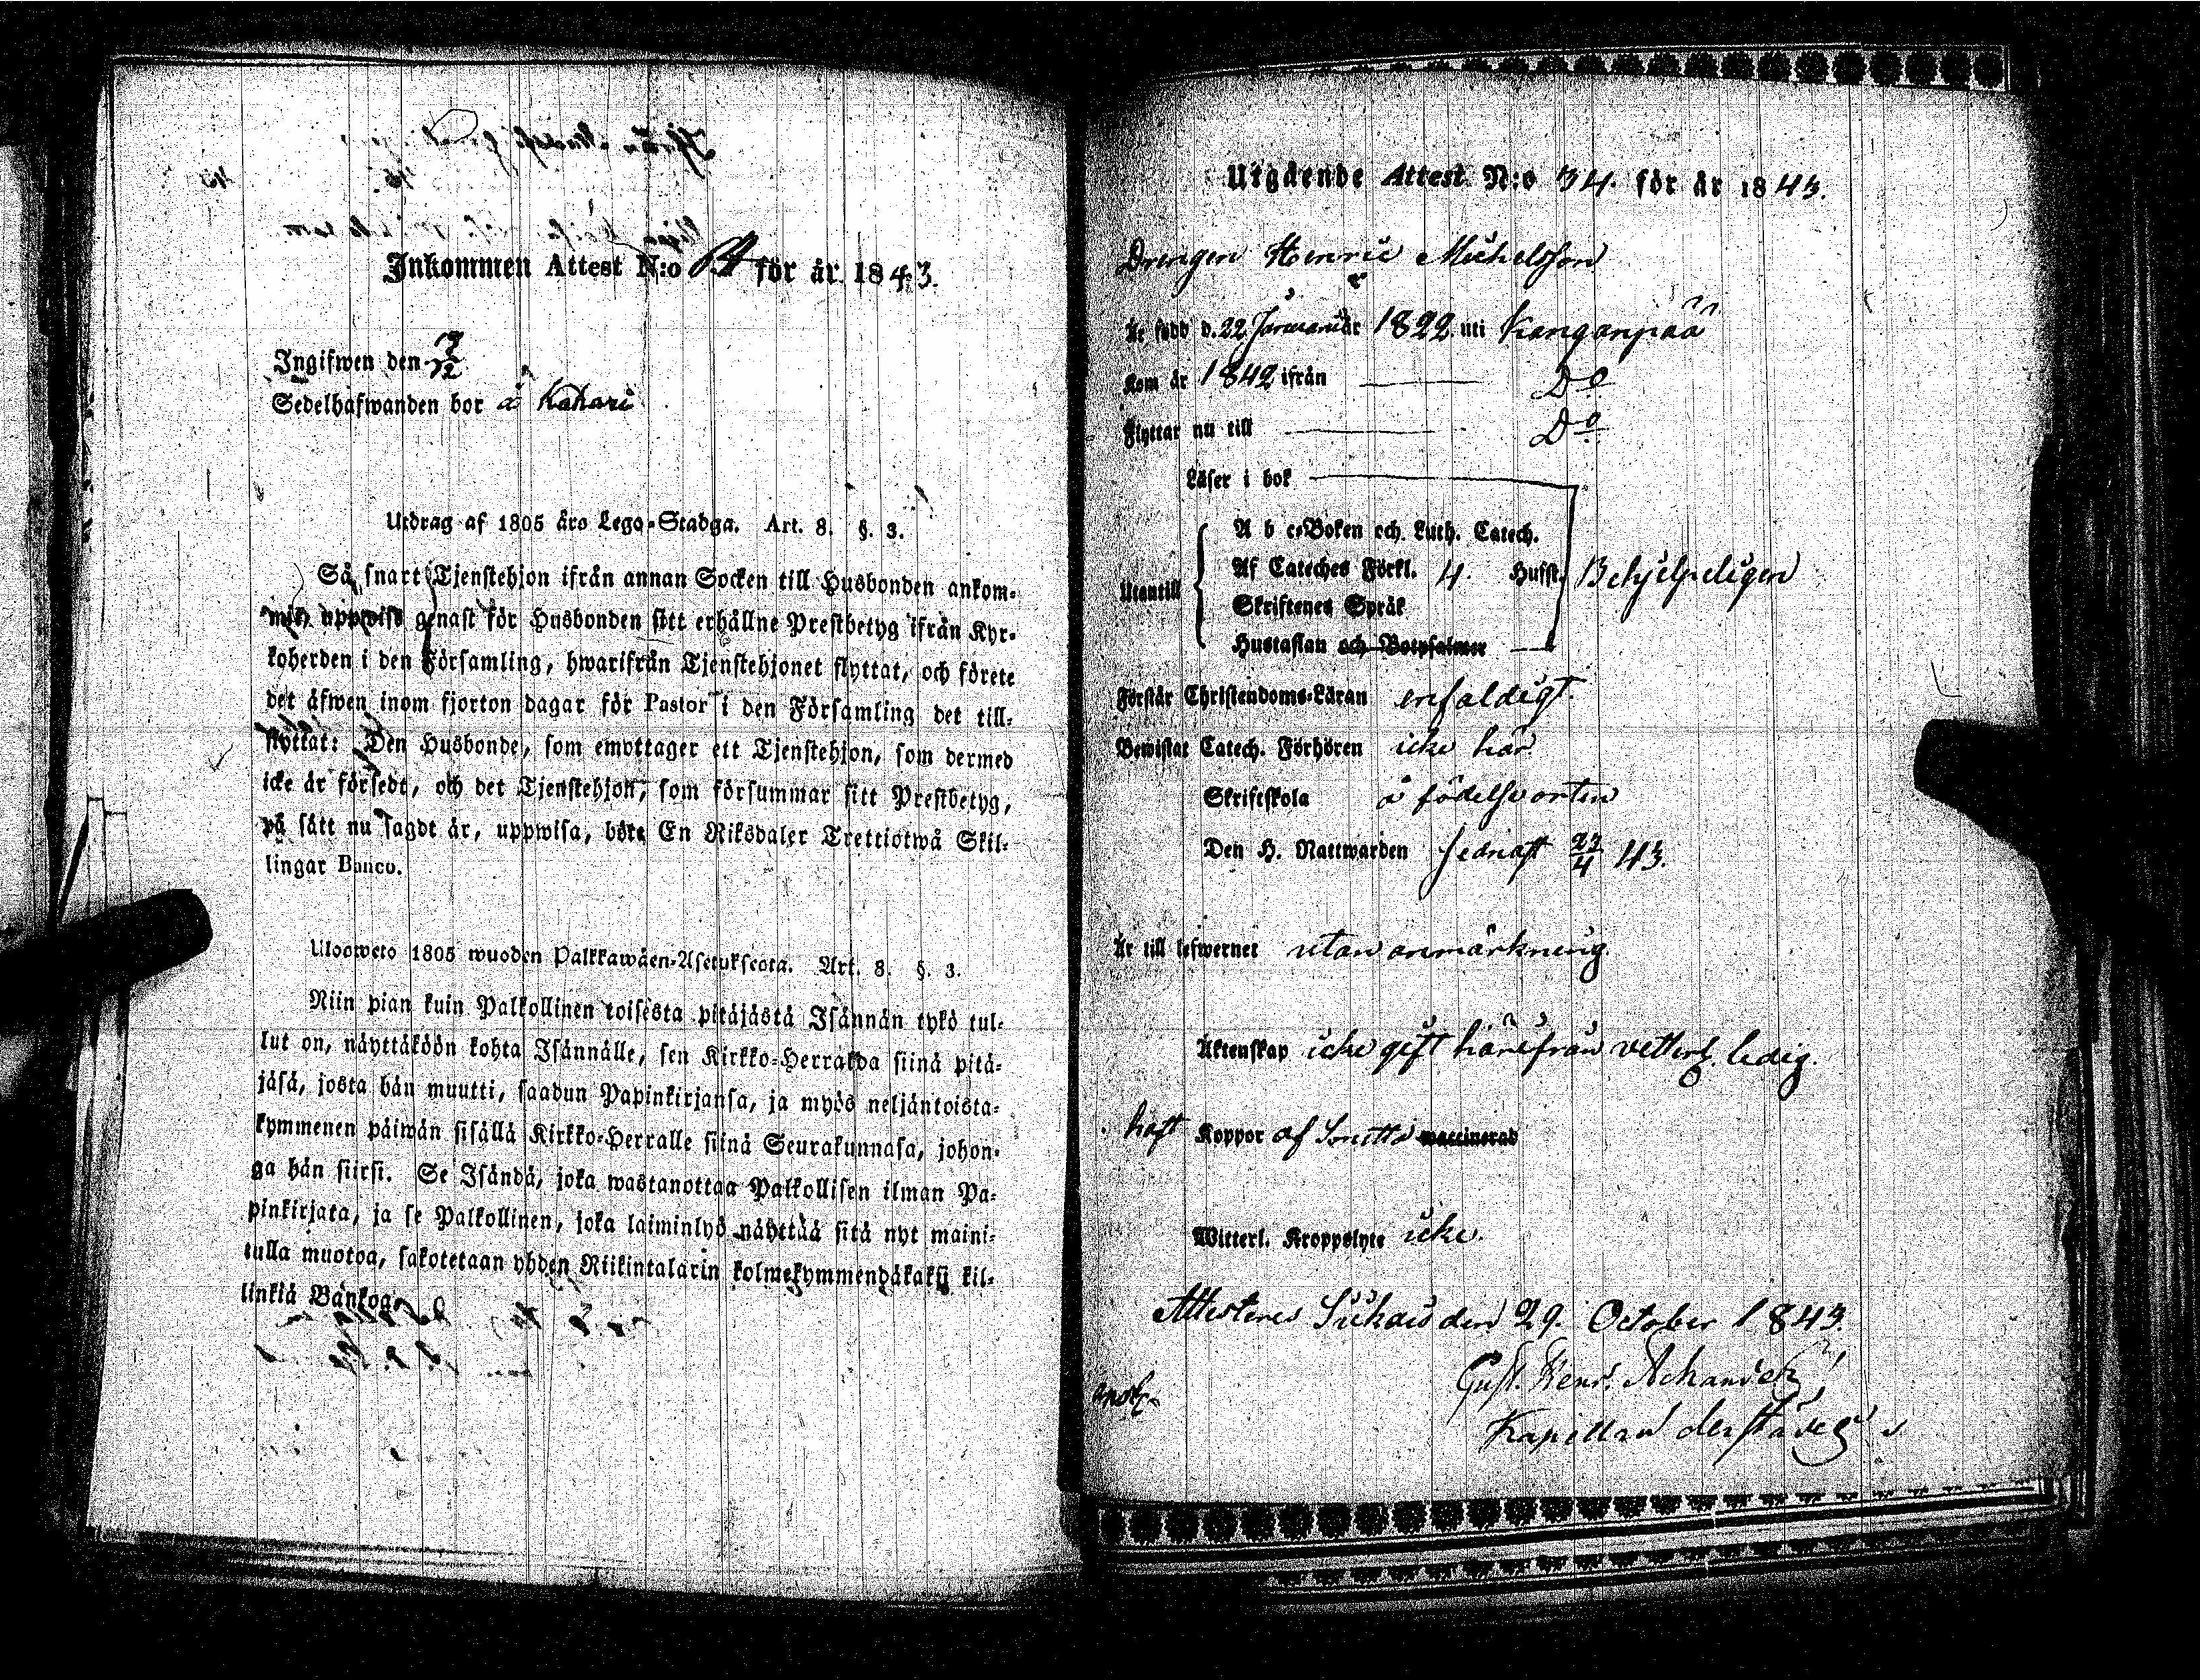 Inkommen Attest N:o för år 1843.
Ingifwen den
Sedelhafwanden bor å Kahari
Utdrag af 1805 års Lego-Stadga. Art. 8. §. 3.
Så snart Tjenstehjon ifrån annan Socken till Husbonden ankom-
mit, uppwise genast för Husbonden sitt erhållne Prestbetyg ifrån Kyr-
koherden i den Församling, hwarifrån Tjenstehjonet flyttat, och förete
det äfwen inom fjorton dagar för Pastor i den Församling det till-
flyttat: Den Husbonde, som emottager ett Tjenstehjon, som dermed
icke är försedt, och det Tjenstehjon, som försummar sitt Prestbetyg,
på sätt nu sagdt är, uppwisa, böte En Riksdaler Trettiotwå Skil-
lingar Banco.
Ulosweto 1805 wuoden Palkkawäen-Asetuksesta. Art. 8. §. 3.
Niin pian kuin Palkollinen toisesta pitäjästä Isännän tykö tul-
lut on, näyttäköön kohta Isännälle, sen Kirkko-Herralda siinä pitä-
jäsä, josta hän muutti, saadun Papinkirjansa, ja myös neljäntoista-
kymmenen päiwän sisällä Kirkko-Herralle siinä Seurakunnasa, johon-
ga hän siirsi. Se Isändä, joka wastanottaa Palkollisen ilman Pa-
pinkirjata, ja se Palkollinen, joka laiminlyö näyttää sitä nyt maini-
tulla muotoa, sakotetaan yhden Riikintalarin kolmekymmendäkaksi kil-
linkiä Bankoa.
Utgående Attest N:o 34. för år 1843.
Drengen Henric Michelsson
Är född d. 22 Januarii år 1822 uti Kanganpää
Kom år 1842 ifrån Do
Flyttar nu till Do
Läser i bok
A b c-Boken och Luth. Catech.
Utantill Af Cateches Förkl. 4 Hufst. Behjelpeligen
Skriftenes Språk
Hustaflan och Botpsalmer
Förstår Christendoms-Läran enfaldigt.
Bewistat Catech. Förhören icke här
Skriftskola å födelseorten
Den H. Nattwarden sednast 23/4 43.
Är till lefwernet utan anmärkning.
Äktenskap icke gift härifrån vetterl. ledig.
haft Koppor af Smitta waccinerad
Witterl. Kroppslyte icke.
Attesteres Siikais den 29. October 1843.
Gust. Henr.
Kapellan derstädes